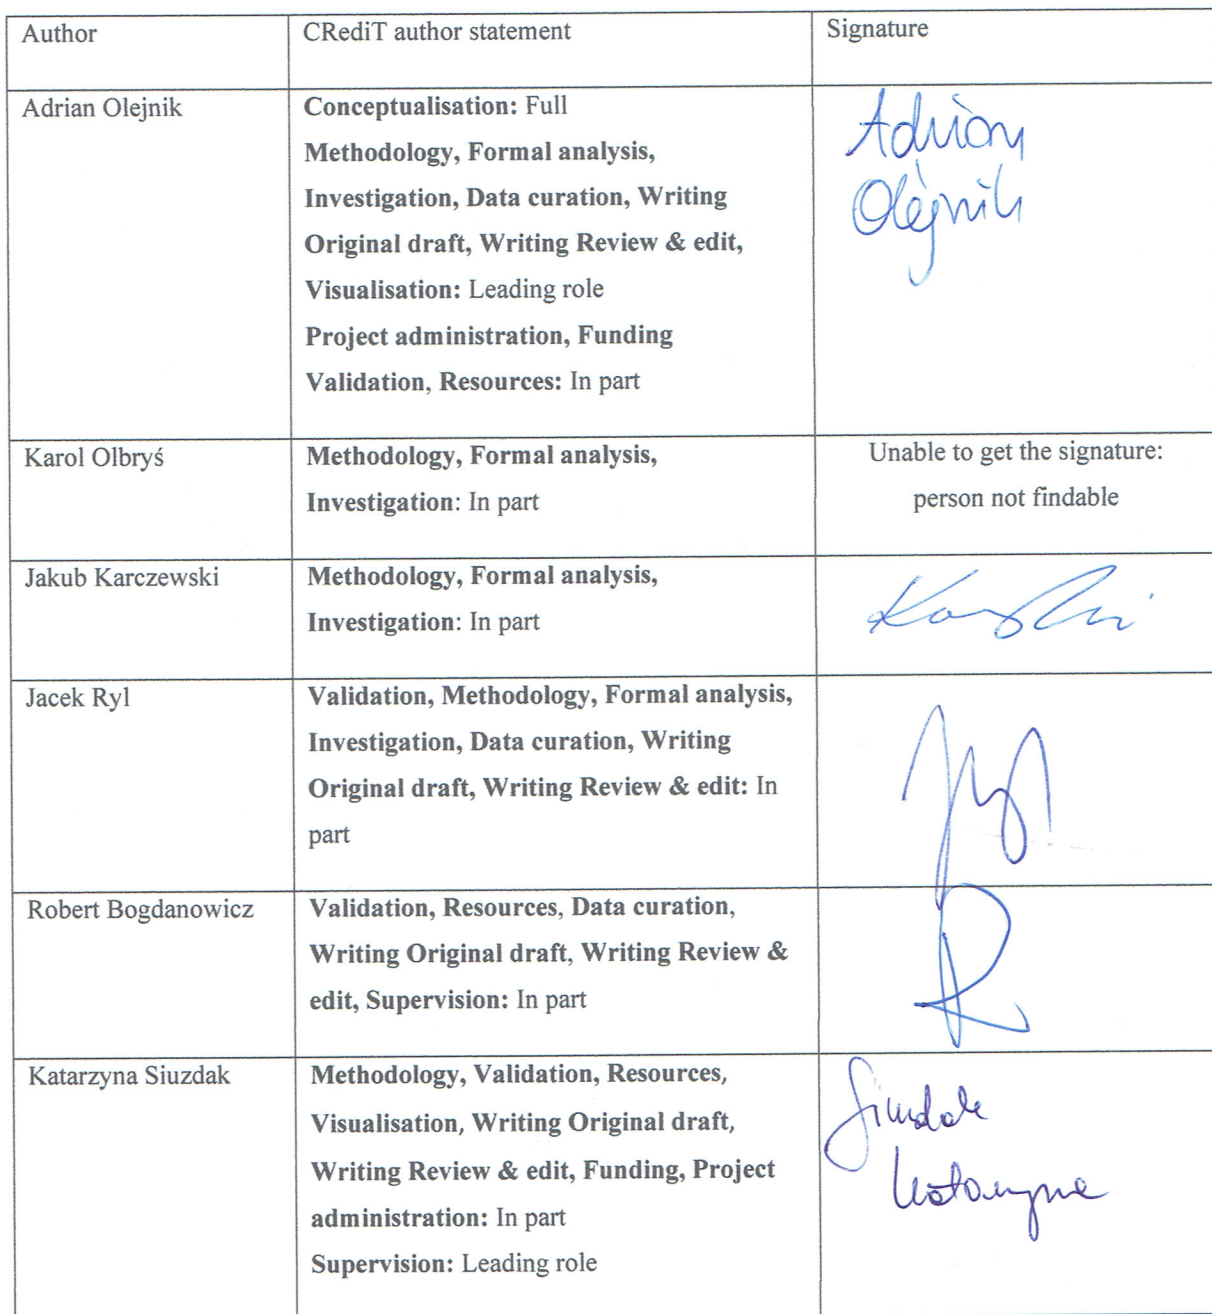 Author CRediT author statement Signature
Adrian Olejnik
Conceptualisation: Full
Methodology, Formal analysis,
Investigation, Data curation, Writing
Original draft, Writing Review & edit,
Visualisation: Leading role
Project administration, Funding
Validation, Resources: In part
Adrian
Olejnik
Karol Olbryś
Methodology, Formal analysis,
Investigation: In part
Unable to get the signature:
person not findable
Jakub Karczewski
Methodology, Formal analysis,
Investigation: In part
Jacek Ryl
Validation, Methodology, Formal analysis,
Investigation, Data curation, Writing
Original draft, Writing Review & edit: In
part
Robert Bogdanowicz
Validation, Resources, Data curation,
Writing Original draft, Writing Review &
edit, Supervision: In part
R
Katarzyna Siuzdak
Methodology, Validation, Resources,
Visualisation, Writing Original draft,
Writing Review & edit, Funding, Project
administration: In part
Supervision: Leading role
Siuzdak
Katarzyna